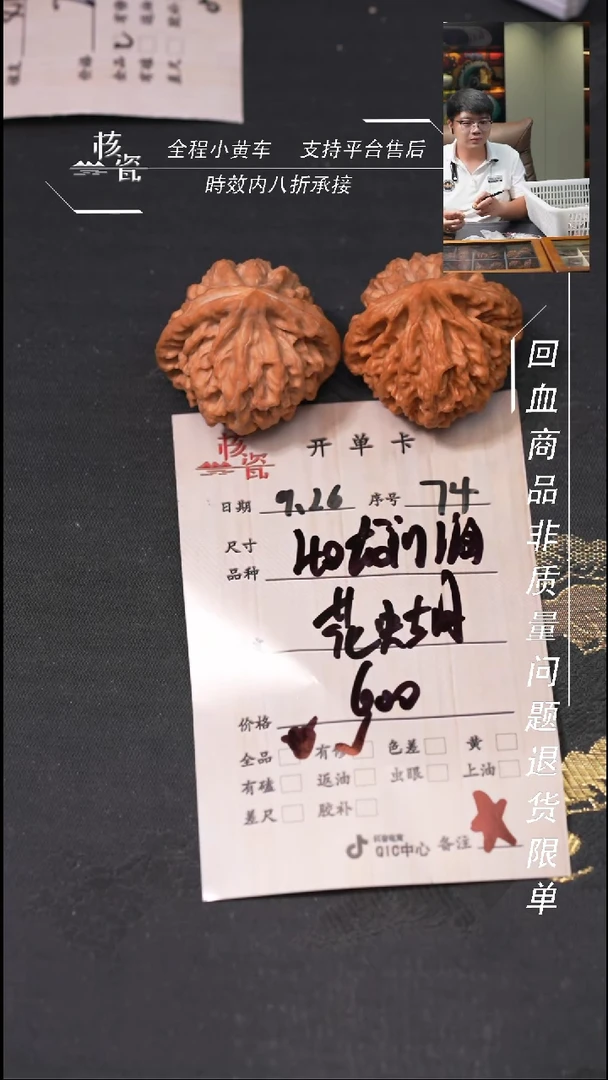 核瓷
全程小黄车 支持平台售后
時效内八折承接
回血商品非质量问题退货限单
核瓷
开单卡
日期 9.26 序号 74
尺寸 40
品种
600
价格
全品 有修 色差 黄
有磕 返油 虫眼 上油
差尺 胶补
抖音电商
QIC中心 备注